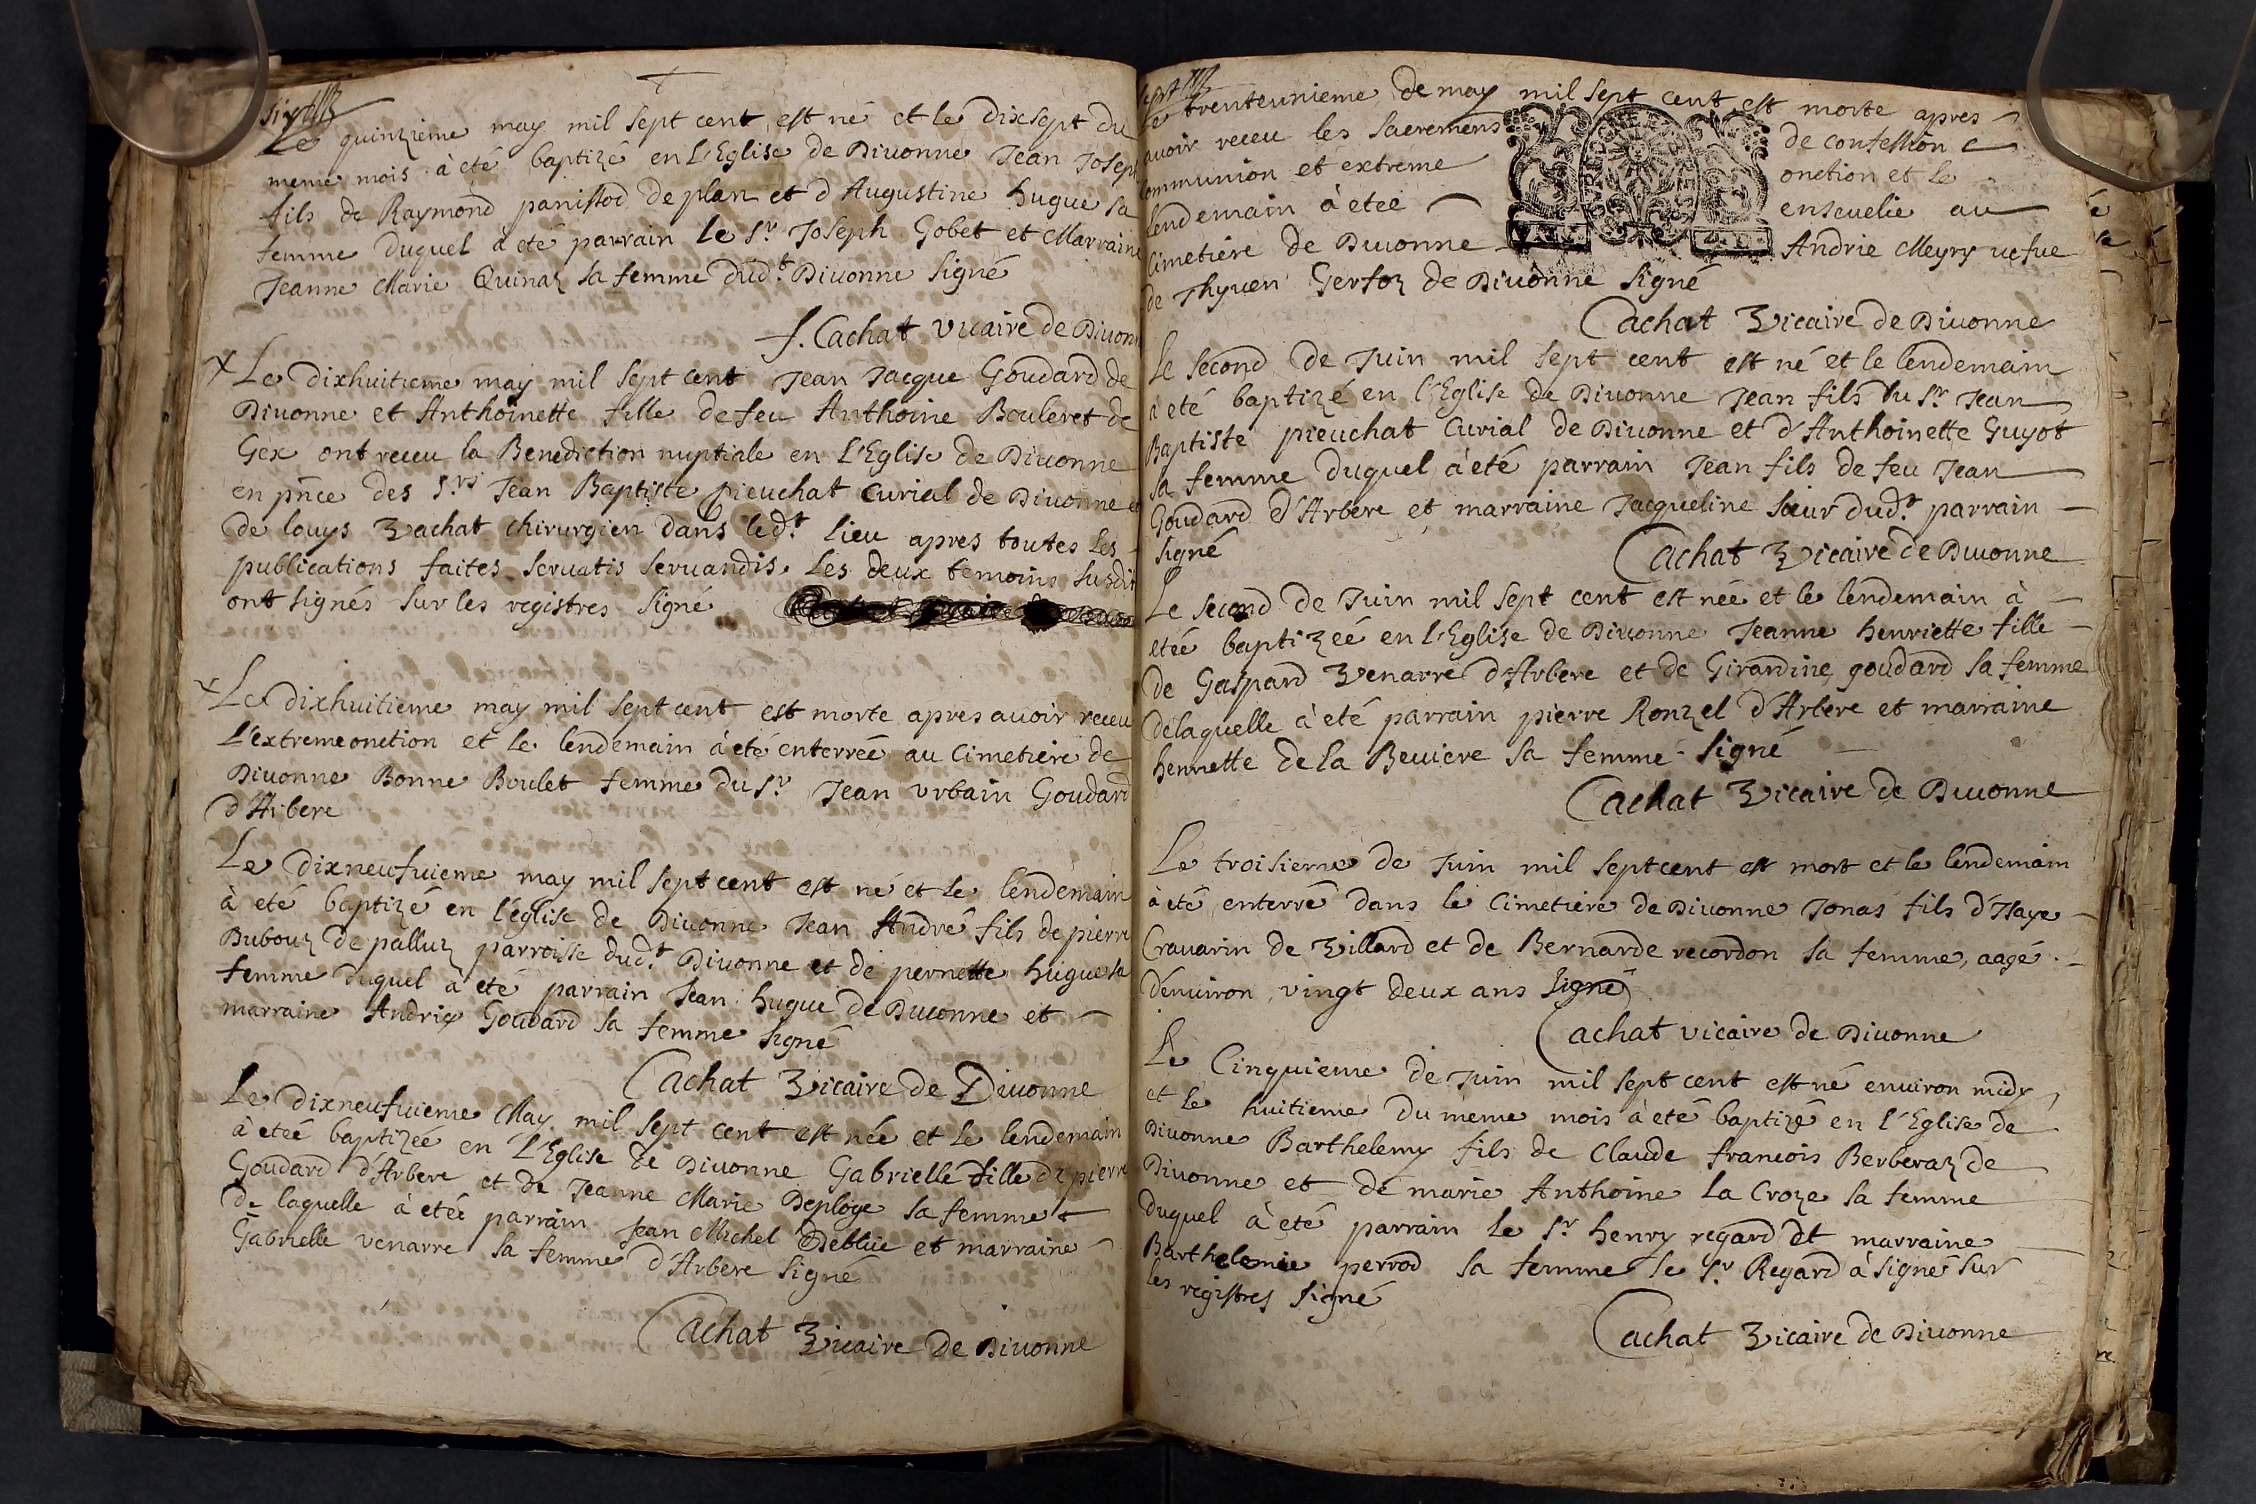 six
Le quinzieme may mil sept cent est né et le dixsept du
meme mois à eté baptizé en L'Eglise de Diuonne Jean Joseph
fils de Raymond panissod de plan et d'Augustine hugue sa
femme duquel à eté parrain Le Sr Joseph Gobet et Marraine
Jeanne Marie Quinaz sa femme dudt Diuonne signé
f. Cachat vicaire de Diuonn
Le dixhuitieme may mil sept cent Jean Jacque Goudard de
Diuonne et Anthoinette fille de feu Anthoine Bouleret de
Gex ont receu la Benediction nuptiale en L'Eglise de Diuonne
en pnce des Srs Jean Baptiste pieuchat Curial de Diuonne et
de louys Vachat chirurgien dans ledt lieu apres toutes les
publications faites seruatis seruandis. Les deux temoins susdit
ont signés sur les registres signé
Le dixhuitieme may mil sept cent est morte apres auoir receu
L'extremeonction et le lendemain à eté enterreé au Cimetiere de
Diuonne Bonne Boulet femme du Sr Jean Vrbain Goudard
d'Arbere
Le dixneufuieme may mil sept cent est né et le lendemain
à eté baptizé en l'église de Diuonne Jean André fils de pierre
Dubouz de palluz parroisse dudt Diuonne et de pernette hugue sa
femme duquel à eté parrain Jean hugue de Diuonne et
marraine Andrie Goudard sa femme signé
Cachat Vicaire de Diuonne
Le dixneufuieme May mil sept cent est née et le lendemain
à eteé baptizeé en L'Eglise de Diuonne Gabrielle fille de pierre
Goudard d'Arbere et de Jeanne Marie Deploge sa femme
de laquelle à etéé parrain Jean Michel Deblüe et marraine
Gabrielle venarre sa femme d'Arbere signé
Cachat Vicaire de Diuonne
sept
Le trenteunieme de may mil sept cent est morte apres
auoir receu les sacremens de confession
communion et extreme onction et le
lendemain à eteé enseuelie au
Cimetiere de Diuonne Andrie Meyry vefue
de Thyuen Gerfoz de Diuonne signé
Cachat Vicaire de Diuonne
Le second de Juin mil sept cent est né et le lendemain
à eté baptizé en l'Eglise de Diuonne Jean fils du Sr Jean
Baptiste pieuchat Curial de Diuonne et d'Anthoinette Guyot
sa femme duquel à eté parrain Jean fils de feu Jean
Goudard d'Arbere et marraine Jacqueline sœur dudt parrain
signé Cachat Vicaire de Diuonne
Le second de Juin mil sept cent est née et le lendemain à
eteé baptizeé en l'Eglise de Diuonne Jeanne henriette fille
de Gaspard Venarre d'Arbere et de Girardine goudard sa femme
de laquelle à eté parrain pierre Ronzel d'Arbere et marraine
henriette de la Beuiere sa femme signé
Cachat Vicaire de Diuonne
Le troisieme de Juin mil sept cent est mort et le lendemain
à eté enterré dans le Cimetiere de Diuonne Jonas fils d'Isaye
Crauarin de Villard et de Bernarde recordon sa femme, aagé
d'enuiron vingt deux ans signé
Cachat vicaire de Diuonne
Le Cinquieme de Juin mil sept cent est né enuiron midy
et le huitieme du meme mois à eté baptizé en l'Eglise de
Diuonne Barthelemy fils de Claude francois Berberaz de
Diuonne et de marie Anthoine La Croze sa femme
duquel à eté parrain le Sr henry regard et marraine
Barthelemie perrod sa femme le Sr Regard à signé sur
les registres signé
Cachat Vicaire de Diuonne